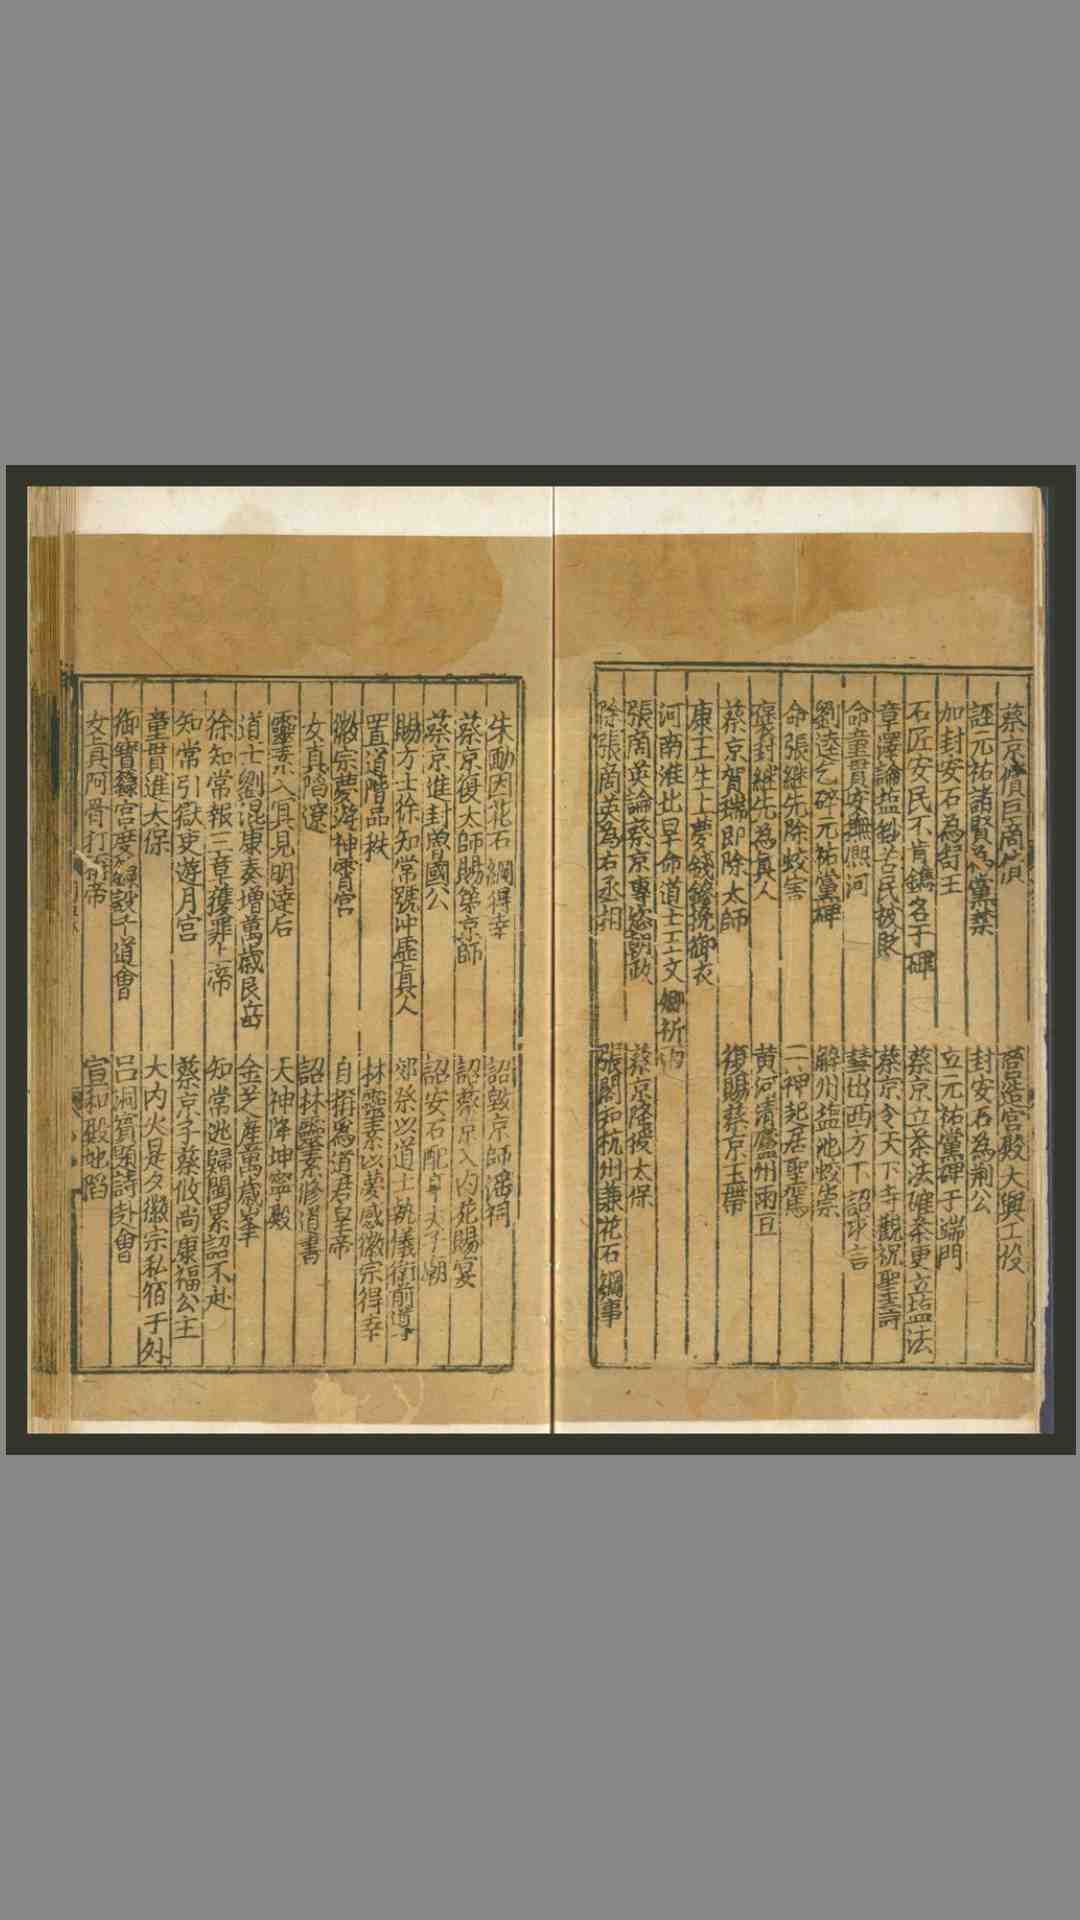 蔡京償巨商債
營造宮殿大興工役
誣元祐諸賢為黨禁
封安石為荊公
加封安石為舒王
立元祐黨碑于端門
石匠安民不肯鐫名于碑
蔡京立茶法確条更立塩法
章縡論塩鈔苦民被貶
蔡京令天下寺觀祝聖壽
命童貫安撫熙河
彗出西方下詔求言
劉逵乞碎元祐黨碑
解州塩池蛟祟
命張継先除蛟害
二神起居聖駕
褒封継先為真人
黄河清廬州雨豆
蔡京賀瑞即除太師
復賜蔡京玉帶
康王生上夢錢鏐挽御衣
河南淮北旱命道士王文卿祈雨
張商英論蔡京專恣朝政
蔡京降授太保
除張商英為右丞相
張閣知杭州兼花石綱事
朱勔因花石綱得幸
詔毀京師淫祠
蔡京復太師賜第京師
詔蔡京入内苑賜宴
蔡京進封魯國公
詔安石配享夫子廟
賜方士徐知常號冲虛真人
郊祭以道士執儀衛前導
置道階品秩
林靈素以夢感徽宗得幸
徽宗夢游神霄宮
自稱為道君皇帝
女真陷遼
詔林靈素修道書
靈素入冥見明達后
天神降坤寧殿
道士劉混康奏增萬歲艮岳
金芝産萬歲峯
徐知常報三章獲罪上帝
知常逃歸閩累詔不赴
知常引獄吏遊月宮
蔡京子蔡攸尚康福公主
童貫進太保
大内火是夕徽宗私宿于外
御寶籙宮度籙設千道會
呂洞賓題詩赴會
女真阿骨打稱帝
宣和殿地陷